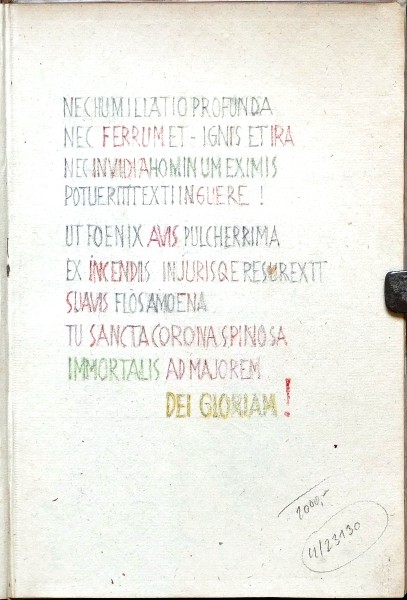 NEC HUMILIATIO PROFUNDA
NEC FERRUM ET - IGNIS ET IRA
NEC INVIDIA HOMINUM EXIMIS
POTUERITT EXTIINGUERE !
UT FOENIX AVIS PULCHERRIMA
EX INCENDIIS INJURISQE RESUREXTT
SUAVIS FLOS AMOENA
TU SANCTA CORONA SPINOSA
IMMORTALIS AD MAJOREM
DEI GLORIAM !
2000,-
4/23130